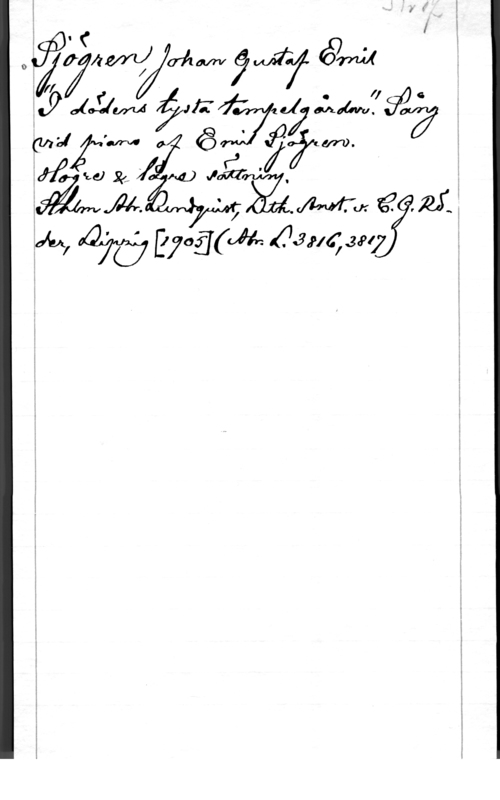 Sjögren, Johan Gustaf Emil
"I dödens tysta tempelgårdar". Sång
vid piano af Emil Sjögren.
Högre & lägre sättning.
Sthlm Abr. Lundquist, Lith. Anst. v. C. G. Rö-
der, Leipzig [1905] (Abr. L. 3816, 3817)